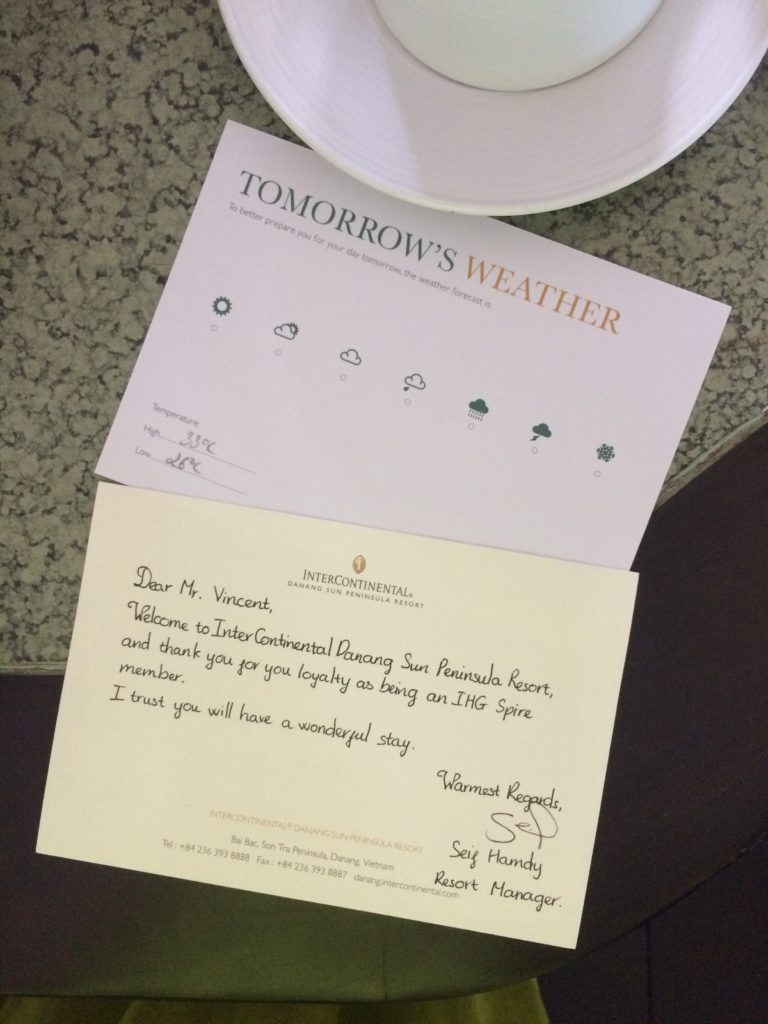 TOMORROW'S WEATHER
To better prepare you for your day tomorrow, the weather forecast is:
Temperature:
High 33°C
Low 26°C
INTERCONTINENTAL®
DANANG SUN PENINSULA RESORT
Dear Mr. Vincent,
Welcome to InterContinental Danang Sun Peninsula Resort,
and thank you for you loyalty as being an IHG Spire
member.
I trust you will have a wonderful stay.
Warmest Regards,
Seif Hamdy
Resort Manager.
INTERCONTINENTAL® DANANG SUN PENINSULA RESORT
Bai Bac, Son Tra Peninsula, Danang, Vietnam
Tel : +84 236 393 8888 Fax : +84 236 393 8887 danang.intercontinental.com